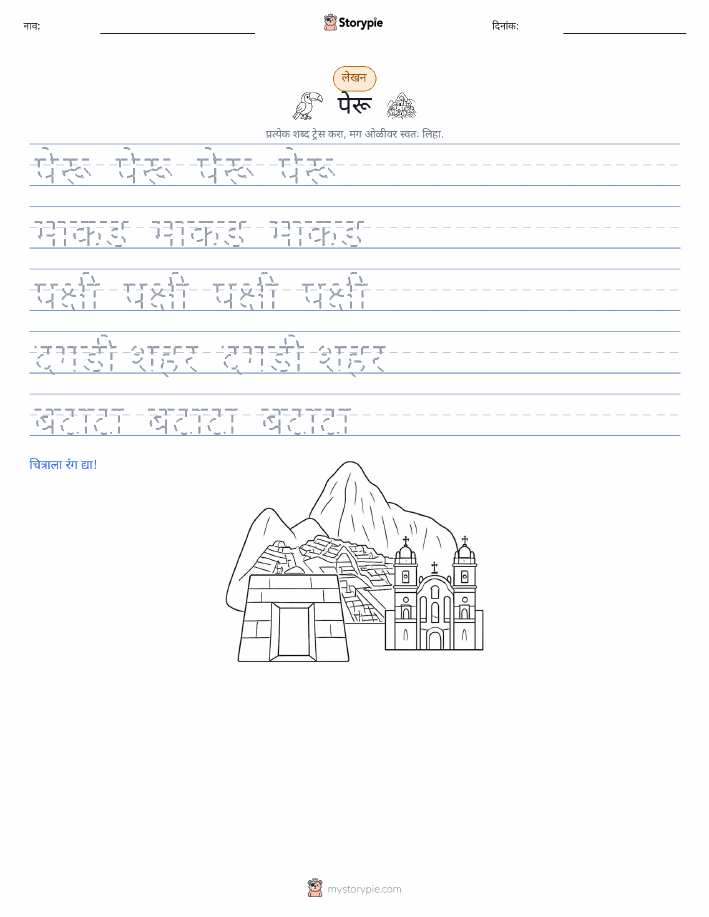 नाव:
Storypie
दिनांक:
लेखन
पेरू
प्रत्येक शब्द ट्रेस करा, मग ओळीवर स्वतः लिहा.
पेरू पेरू पेरू पेरू
माकड माकड माकड
पक्षी पक्षी पक्षी पक्षी
दगडी शहर दगडी शहर
बटाटा बटाटा बटाटा
चित्राला रंग द्या!
mystorypie.com